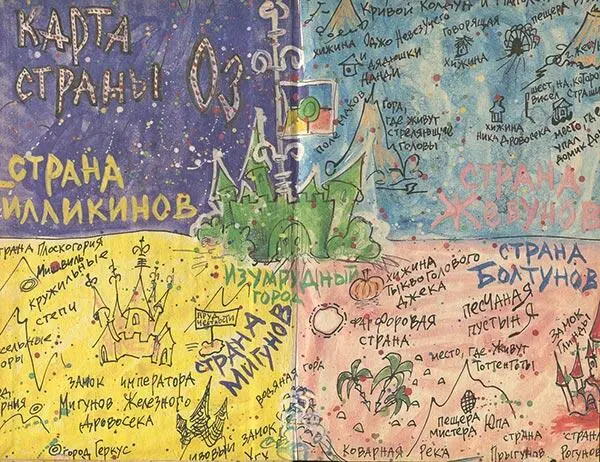 КАРТА
СТРАНЫ ОЗ
Кривой Колдун и
пещера
хижина Оджо Невезучего
и дядюшки
Нанди
Говорящая
хижина
поле маков
гора,
где живут
стреляющие
головы
хижина
Ника Дровосека
шест, на котором
висел
место, где
упал
домик
СТРАНА
ИЛЛИКИНОВ
СТРАНА
ЖЕВУНОВ
ИЗУМРУДНЫЙ
ГОРОД
СТРАНА
МИГУНОВ
СТРАНА
БОЛТУНОВ
страна Плоскогория
кружильные
степи
замок императора
Мигунов Железного
Дровосека
город Геркус
замок
Угу
гора
хижина
Тыквоголового
Джека
Фарфоровая
страна
песчаная
пустыня
место, где живут
Тоттентоты
замок
Глинды
пещера
мистера Юпа
коварная река
страна
Прыгунов
страна
Рогунов